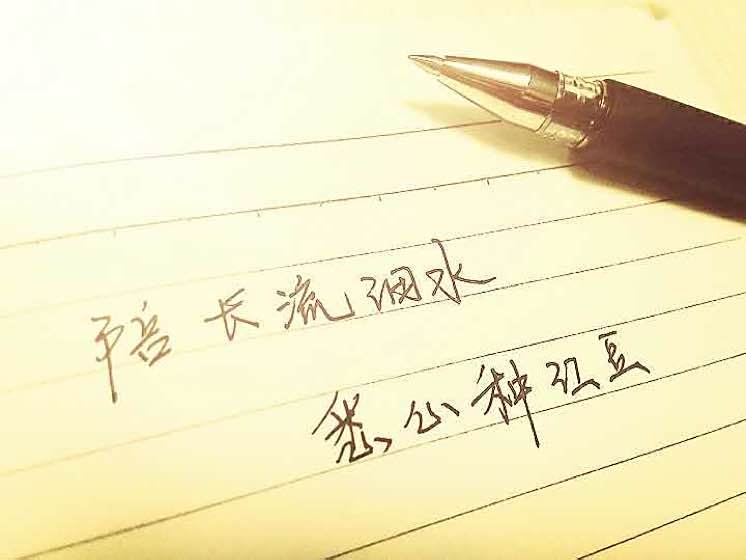 陪长流细水
悉心种红豆